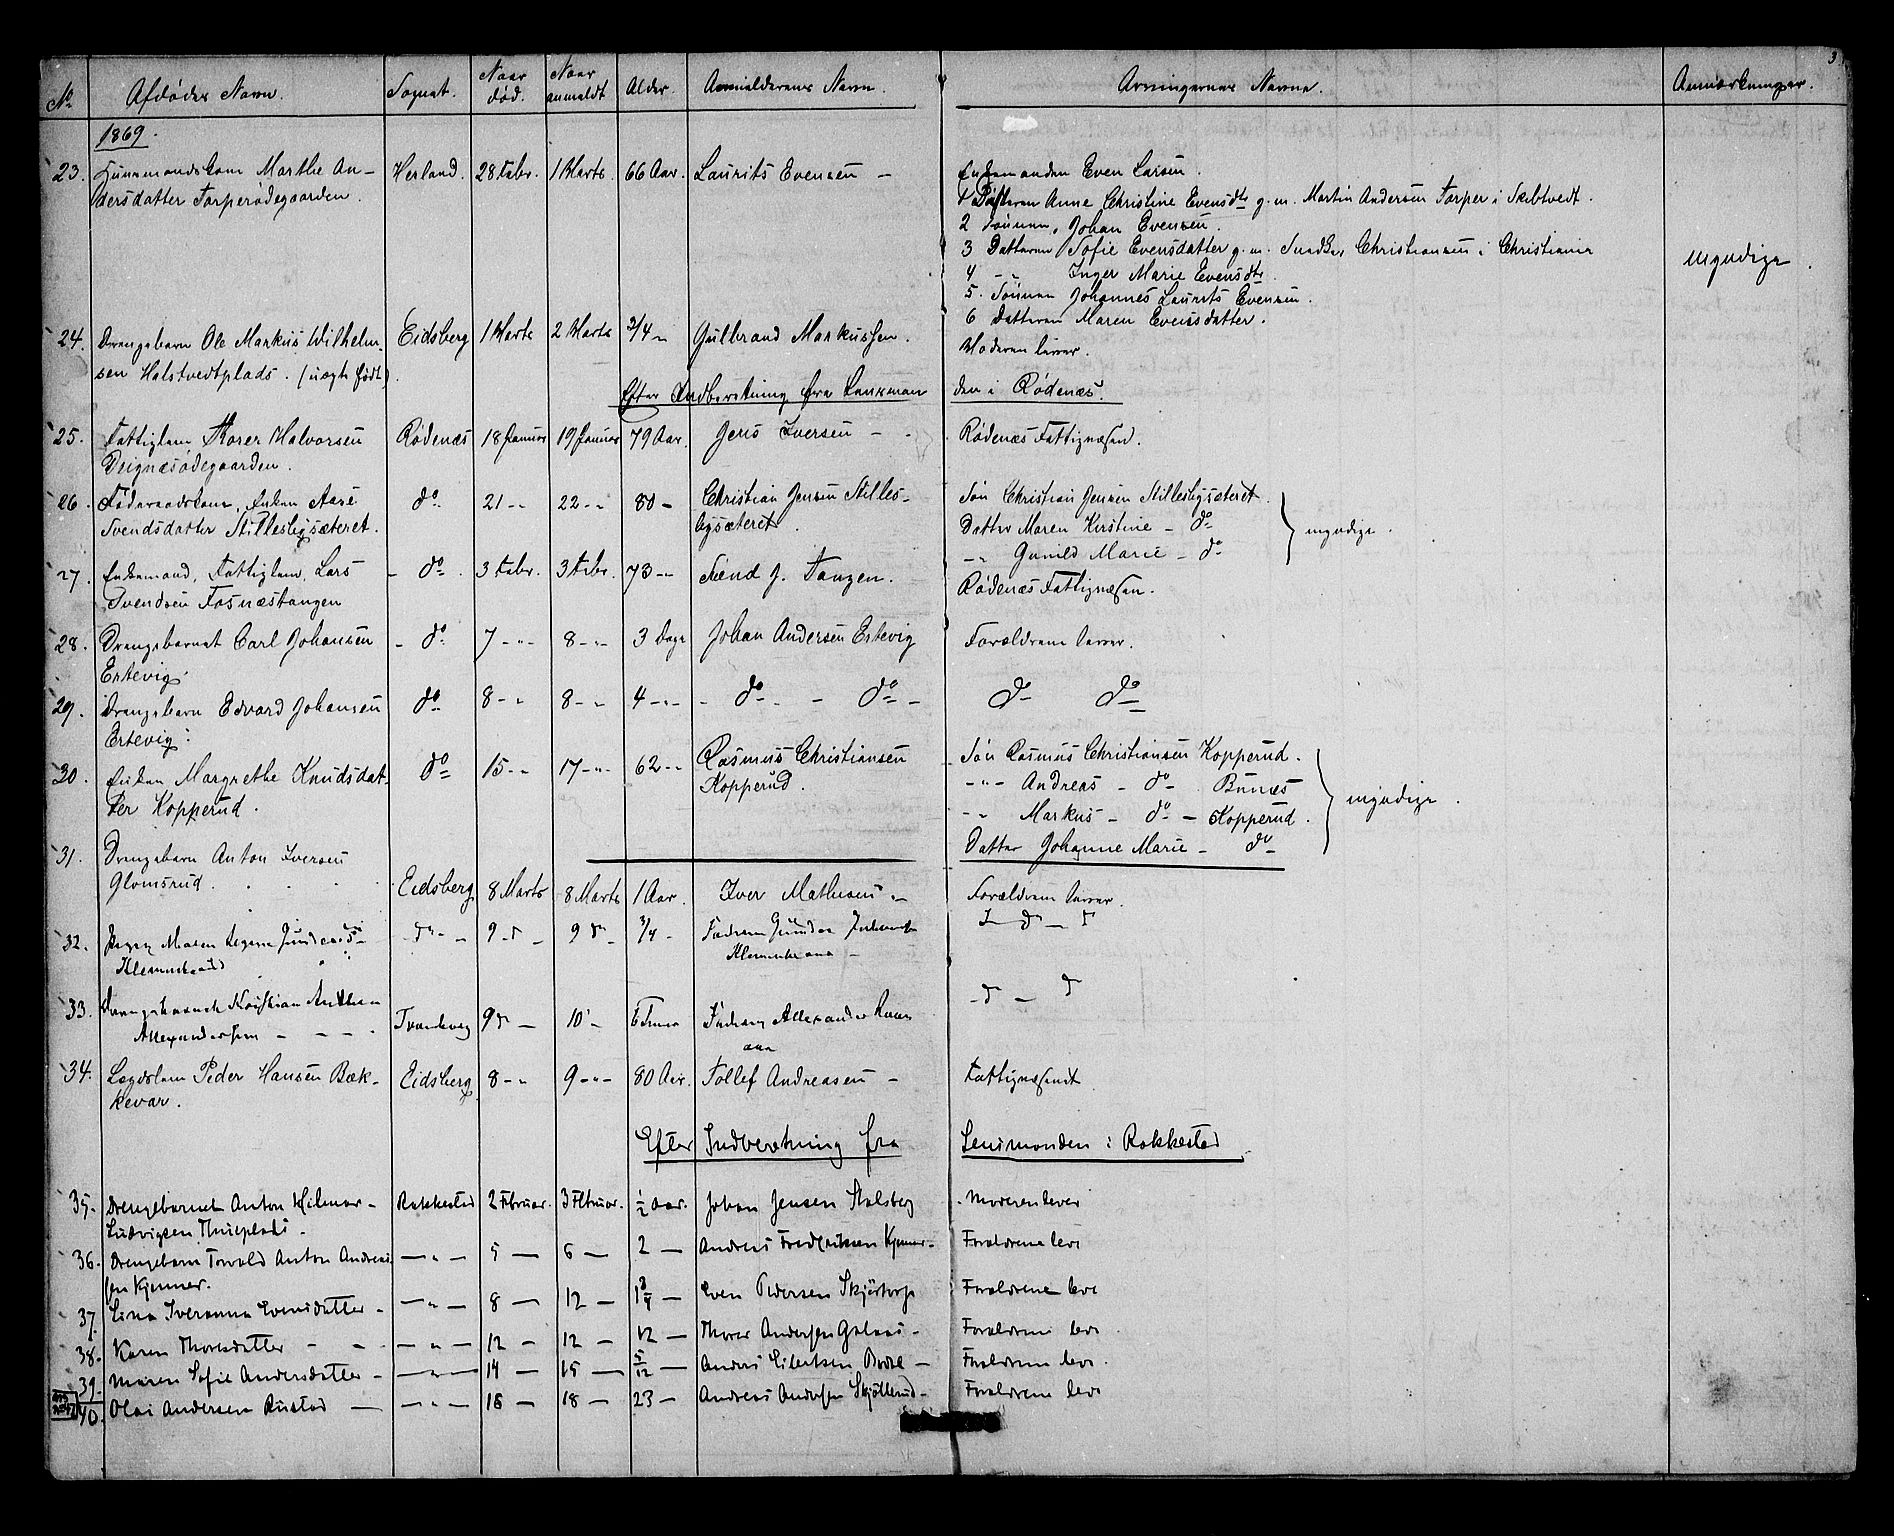 3
No. Afdødes Navn. Sognet. Naar død. Naar anmeldt. Alder. Anmelderens Navn. Arvingernes Navne. Anmærkninger.
1869.
23. Huusmandskone Marthe An- Herland. 28 Febr. 1 Marts. 66 Aar. Laurits Evensen - Enkemanden Even Larsen.
dersdatter Torperødegaarden. 1 Datteren Anne Christine Evensdtr g. m. Martin Andersen Torper i Skibtvedt.
2 Sønnen, Johan Evensen.
3 Datteren Sofie Evensdatter g. m. Snedker Christiansen i Christiania
4 - „ - Inger Marie Evensdtr.
5. Sønnen Johannes Laurits Evensen.
6 Datteren Maren Evensdatter.
myndige.
24. Drengebarn Ole Markus Wilhelm- Eidsberg 1 Marts 2 Marts 3/4 - Gulbrand Markussen. Moderen lever.
sen Holstvedtplads. (uægte født).
Efter Indberetning fra Lensman den i Rødenæs.
25. Fattiglem Thorer Halvorsen Rødenæs 18 Januar 19 Januar 79 Aar. Jens Iversen - Rødenæs Fattigvæsen.
Deignæsødegaarden.
26. Føderaadskone, Enken Aase do 21 - „ 22 - „ 80 - Christian Jensen Stilles- Søn Christian Jensen Stillesbysæteret.
Svendsdatter Stillesbysæteret. bysæteret. Datter Maren Kirstine - do
- „ Gunild Marie - do
myndige.
27. Enkemand, Fattiglem, Lars - do - 3 Febr. 3 Febr. 73 - „ Svend J. Tangen. Rødenæs Fattigvæsen.
Svendsen Fosnæstangen
28. Drengebarnet Carl Johansen - do 7 - „ - 8 - „ 3 Dage Johan Andersen Ertevig Forældrene lever.
Ertevig.
29. Drengebarn Edvard Johansen do 8 - „ 8 - „ 4 - „ - - do - - do - do do
Ertevig.
30. Enken Margrethe Knudsdat- do 15 - „ 17 - „ - 62 - „ Rasmus Christiansen Søn Rasmus Christiansen Kopperud.
ter Kopperud. Kopperud. - „ - Andreas - do - Bunæs
- „ Markus - do - Kopperud.
Datter Johanne Marie - do
myndige.
31. Drengebarn Anton Iversen
Glomsrud. Eidsberg 8 Marts 8 Marts 1 Aar. Iver Mathisen - Forældrene lever.
32. Pigen Maren 9 - 9 3/4 - Faderen Gunder
33. Drengebarnet Kristian 9 - 10 - Faderen Alexander
Allexandersen - - - -
34. Lægdslem Peder Hansen Bæk- Eidsberg 8 - „ 9 - „ - 80 Aar. Tollef Andreasen - Fattigvæsenet
kevar.
Efter Indberetning fra Lensmanden i Rakkestad
35. Drengebarnet Anton Hilmar - Rakkestad 2 Februar. 3 Februar. 1/2 Aar. Johan Jensen Stalsberg - Moderen lever
Ludvigsen
36. Drengebarn Torvald Anton Andreas- — „ — 5 — 6 — 2 — Andreas Fredriksen Kjenner - Forældrene leve
sen Kjenner.
37. Lina Iveranna Evensdatter - — „ — 8 — 12 — 1 3/4 — Even Pedersen Skjørtorp Forældrene leve
38. Karen Thoresdatter - - - — „ — 12 — 12 — 1/2 — Thorer Andersen - Forældrene leve
39. Maren Sofie Andersdatter - — „ — 14 — 15 — 5/12 — Anders Eilertsen - Forældrene leve.
40. Olai Andersen Rustad — — „ — 16 — 18 — 23 — Andreas Andersen - Forældrene leve